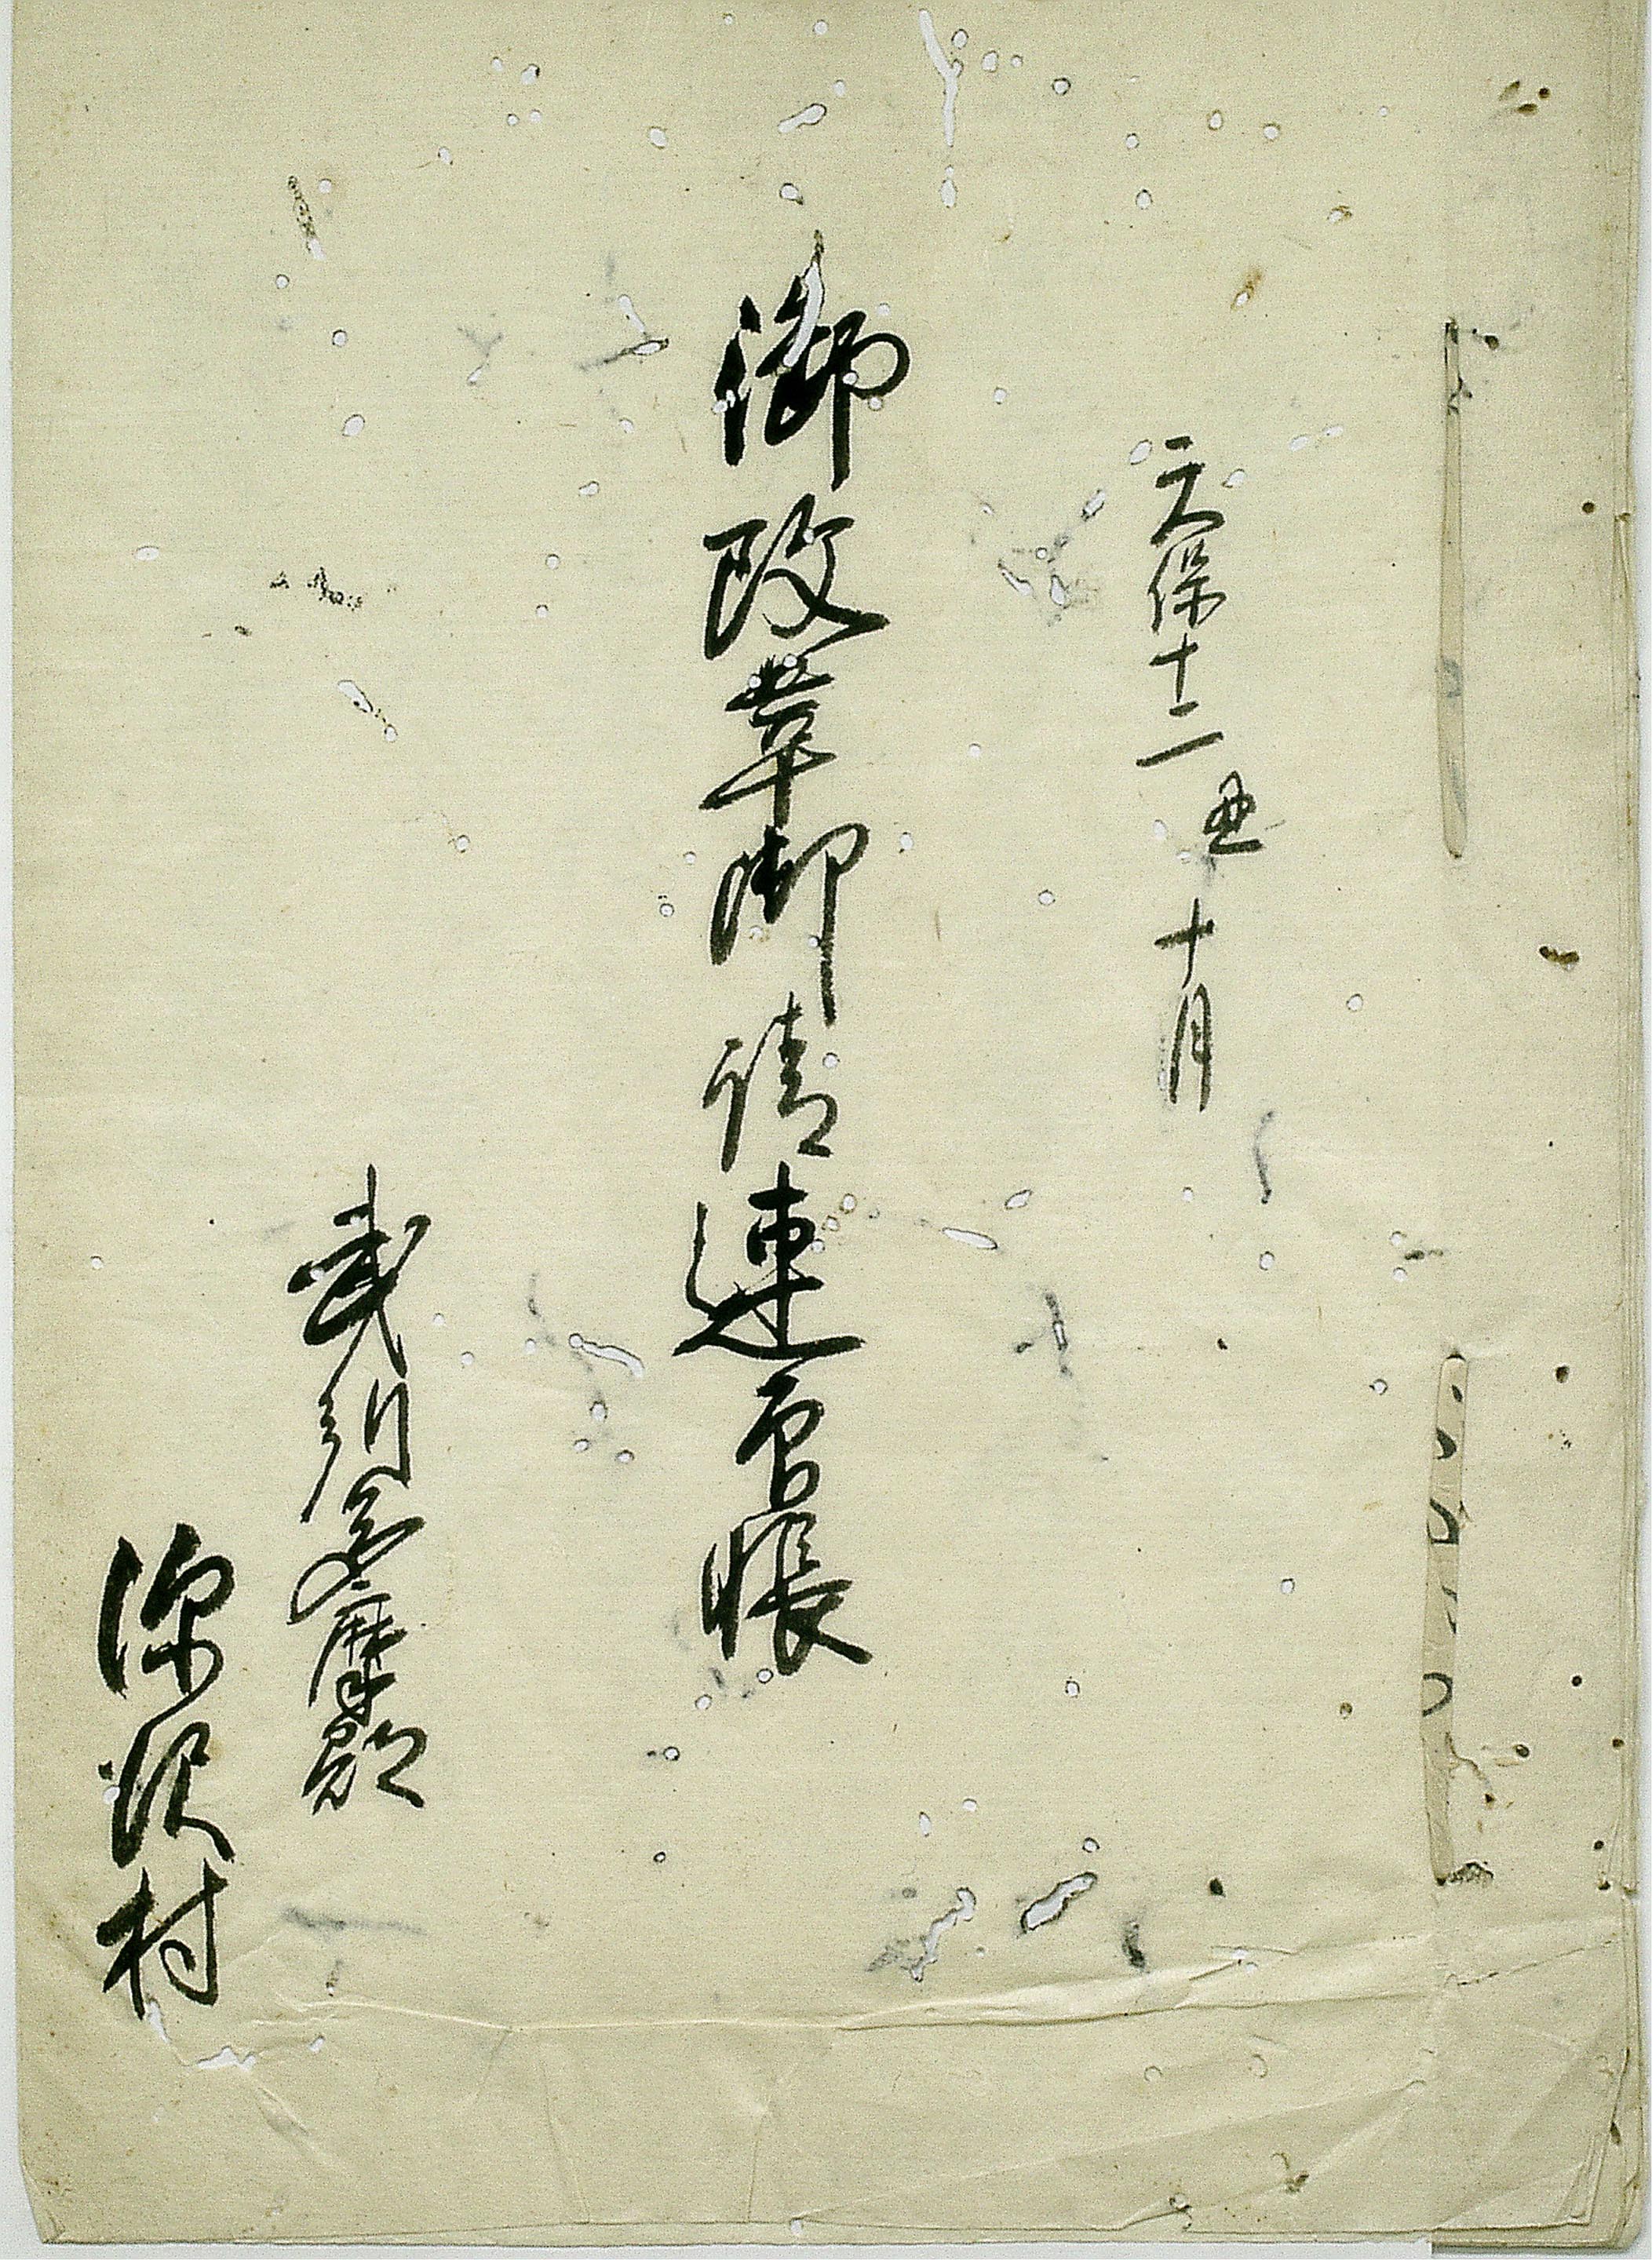 天保十二丑十月
御改革御請連印帳
武州多摩郡
深沢村